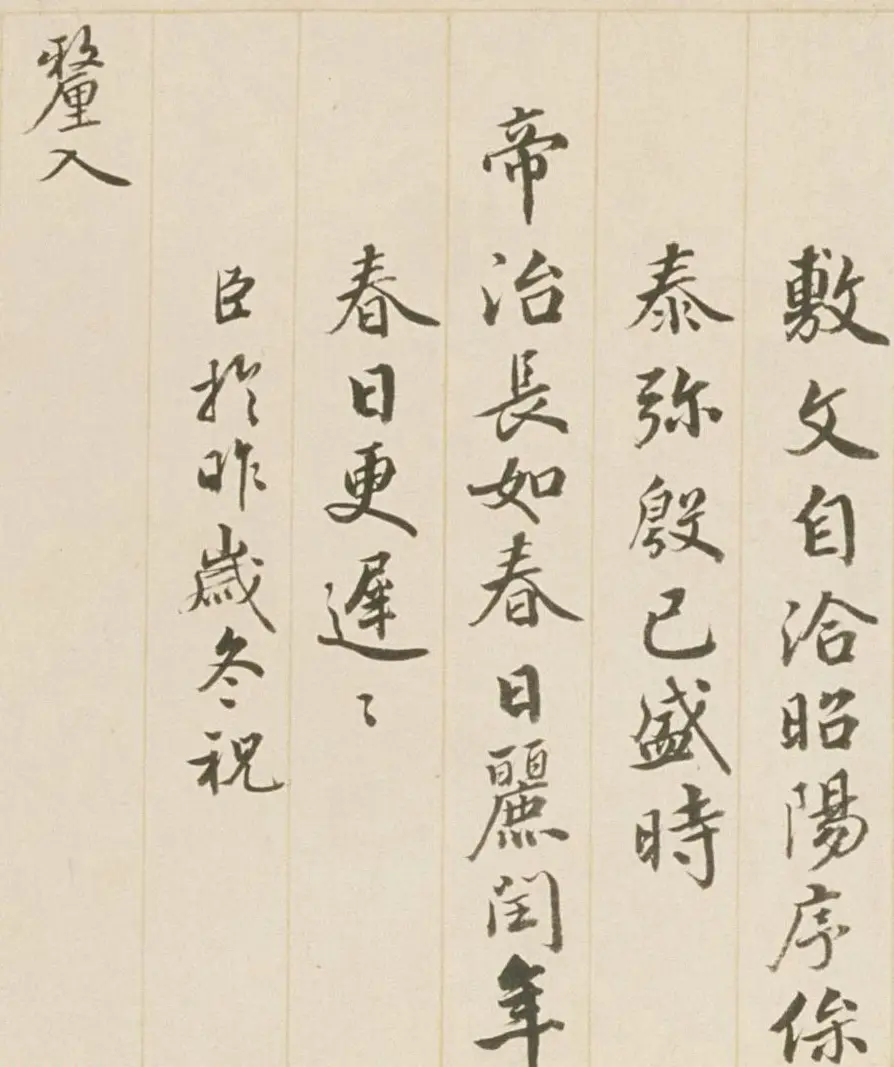 敷文自洽昭陽序保
泰弥殷已盛時
帝治長如春日麗閏年
春日更遲〻
臣於昨歲冬祝
釐入